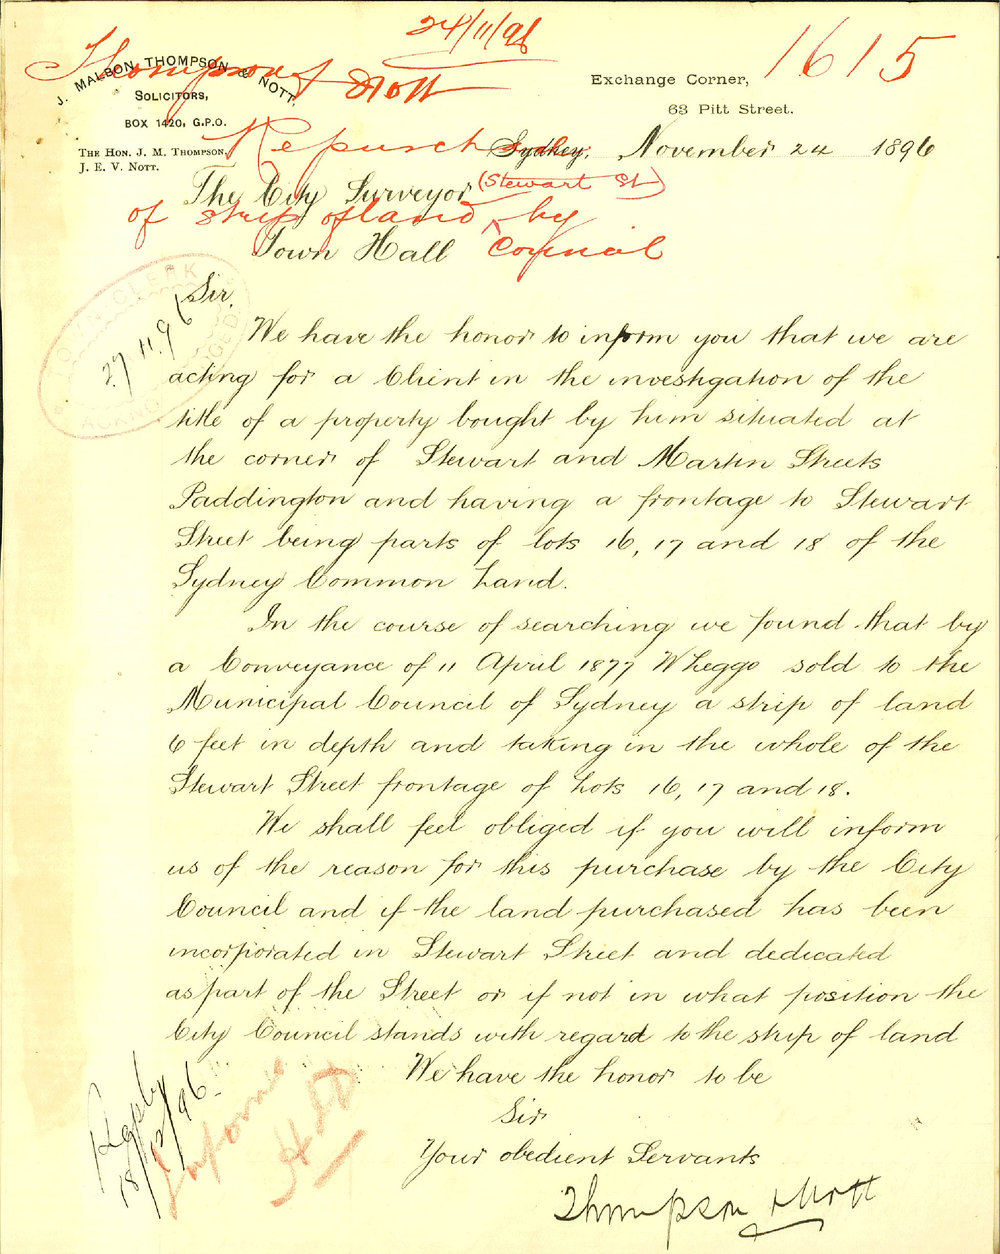 24/11/96
1615
Thompson & Nott
J. MALBON THOMPSON & NOTT.
SOLICITORS,
BOX 1420, G.P.O.
THE HON. J. M. THOMPSON.
J. E. V. NOTT.
Exchange Corner,
63 Pitt Street.
Sydney, November 24 1896
Repurchase
(Stewart St)
of strip of land by
Council
The City Surveyor
Town Hall
TOWN CLERK
27.11.96
Sir,
We have the honor to inform you that we are
acting for a Client in the investigation of the
title of a property bought by him situated at
the corner of Stewart and Martin Streets
Paddington and having a frontage to Stewart
Street being parts of lots 16, 17 and 18 of the
Sydney Common Land.
In the course of searching we found that by
a Conveyance of 11 April 1877 W Leggo sold to the
Municipal Council of Sydney a strip of land
6 feet in depth and taking in the whole of the
Stewart Street frontage of Lots 16, 17 and 18.
We shall feel obliged if you will inform
us of the reason for this purchase by the City
Council and if the land purchased has been
incorporated in Stewart Street and dedicated
as part of the Street or if not in what position the
City Council stands with regard to the strip of land
We have the honor to be
Sir
Your obedient Servants
Thompson & Nott
18/12/96.